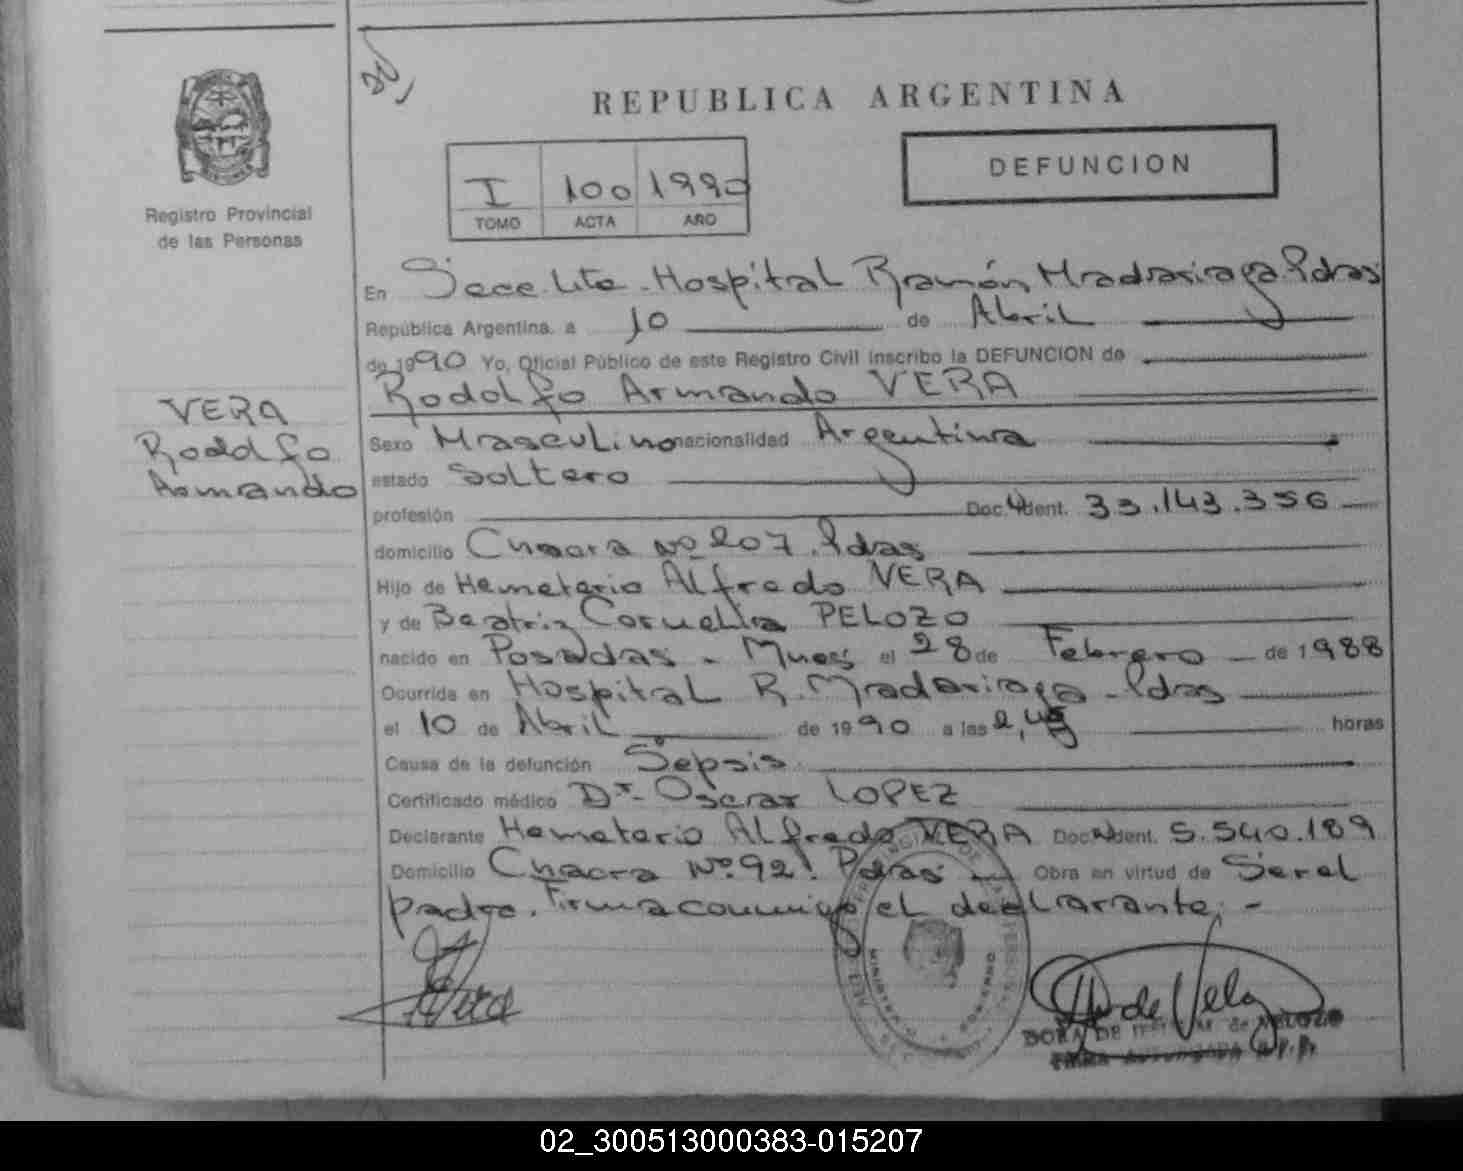 REPUBLICA ARGENTINA
DEFUNCION
I 100 1990
TOMO ACTA AÑO
Registro Provincial
de las Personas
En Secc. Hospital Ramón Madariaga. Pdas
República Argentina, a 10 de Abril
de 1990 Yo, Oficial Público de este Registro Civil inscribo la DEFUNCION de
Rodolfo Armando VERA
VERA
Rodolfo
Armando
Sexo Masculino nacionalidad Argentina
estado Soltero
profesión Doc. Ident. 33.143.356
domicilio Chacra Nº 207. Pdas
Hijo de Hemeterio Alfredo VERA
y de Beatriz Cornelia PELOZO
nacido en Posadas - Mnes el 28 de Febrero de 1988
Ocurrida en Hospital R. Madariaga - Pdas
el 10 de Abril de 1990 a las 2,45 horas
Causa de la defunción Sepsis
Certificado médico Dr. Oscar LOPEZ
Declarante Hemeterio Alfredo VERA Doc. Ident. 5.540.189
Domicilio Chacra Nº 92. Pdas Obra en virtud de Ser el
padre. Firma conmigo el declarante. -
DORA DE
02_300513000383-015207